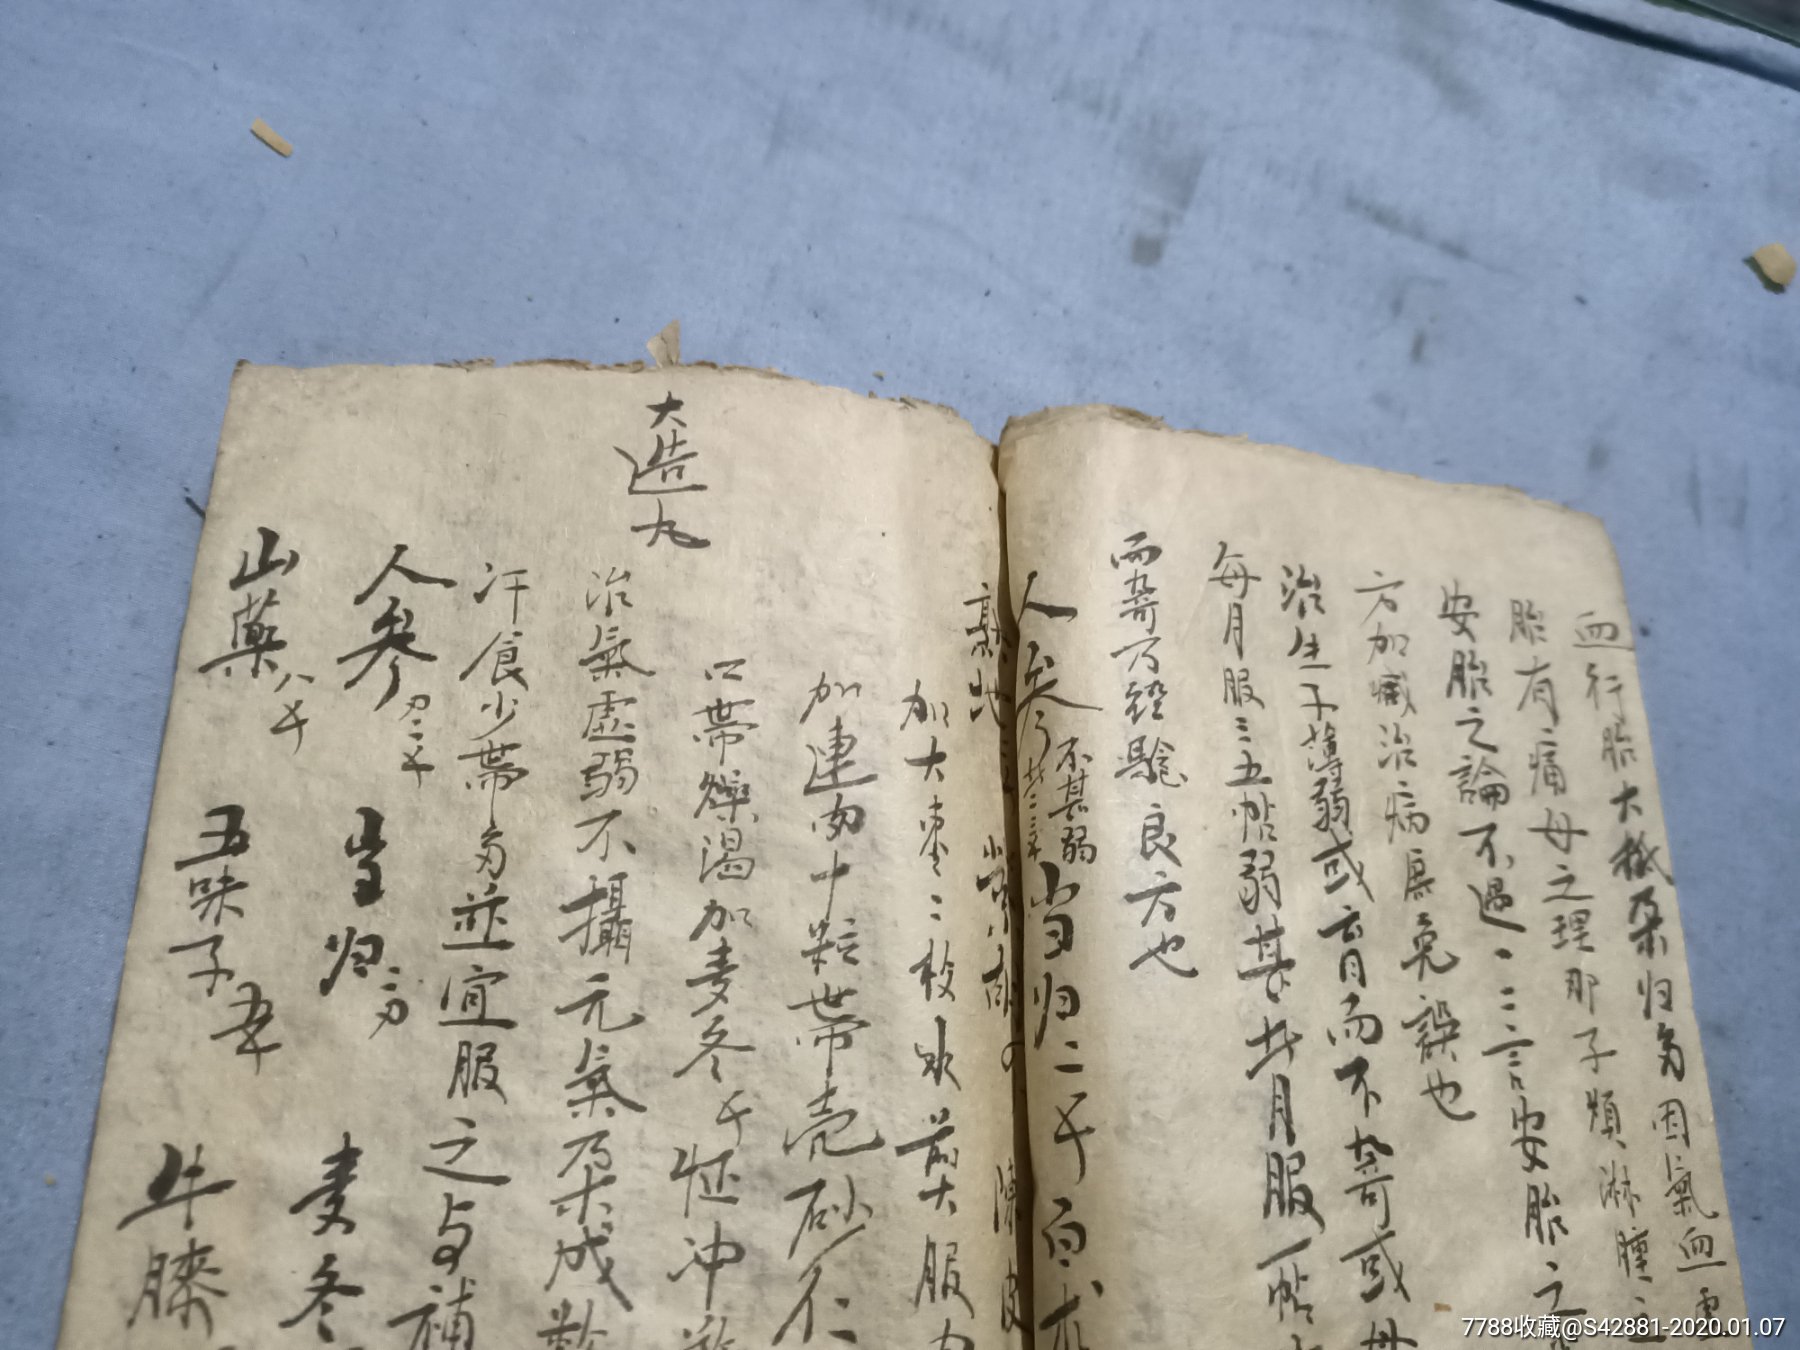 血行胎大極分归多因氣血虛
胎有痛母之理那子煩淋腫之
安胎之論不過一二言安胎之
方加减治病庶免誤也
治生子薄弱或育而不寿或母
每月服三五帖弱甚廿月服一帖
兩寄方經驗良方也
人参 不甚弱 廿二三千 当归二千 白术
熟地 紫蘇 陳皮
加大枣二枚水煎大服
加連肉十粒帶壳砂仁
口帶燥渴加麦冬千 怔冲
大造丸
治氣虛弱不攝元氣欲成
汗食少帶多並宜服之与補
人参 当归 麦冬
山藥八千 五味子 牛膝
7788收藏@S42881-2020.01.07